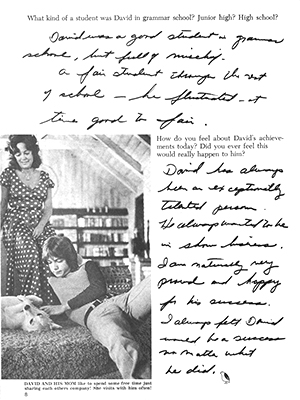 What kind of a student was David in grammar school? Junior high? High school?
David was a good student in grammar
school, but full of mischief.
A fair student through the rest
of school — he fluctuated — at
time good to fair.
How do you feel about David's achieve-
ments today? Did you ever feel this
would really happen to him?
David has always
been an exceptionally
talented person.
He always wanted to be
in show business.
I am naturally very
proud and happy
for his success.
I always felt David
would be a success
no matter what
he did.
DAVID AND HIS MOM like to spend some free time just
sharing each others company! She visits with him often!
8